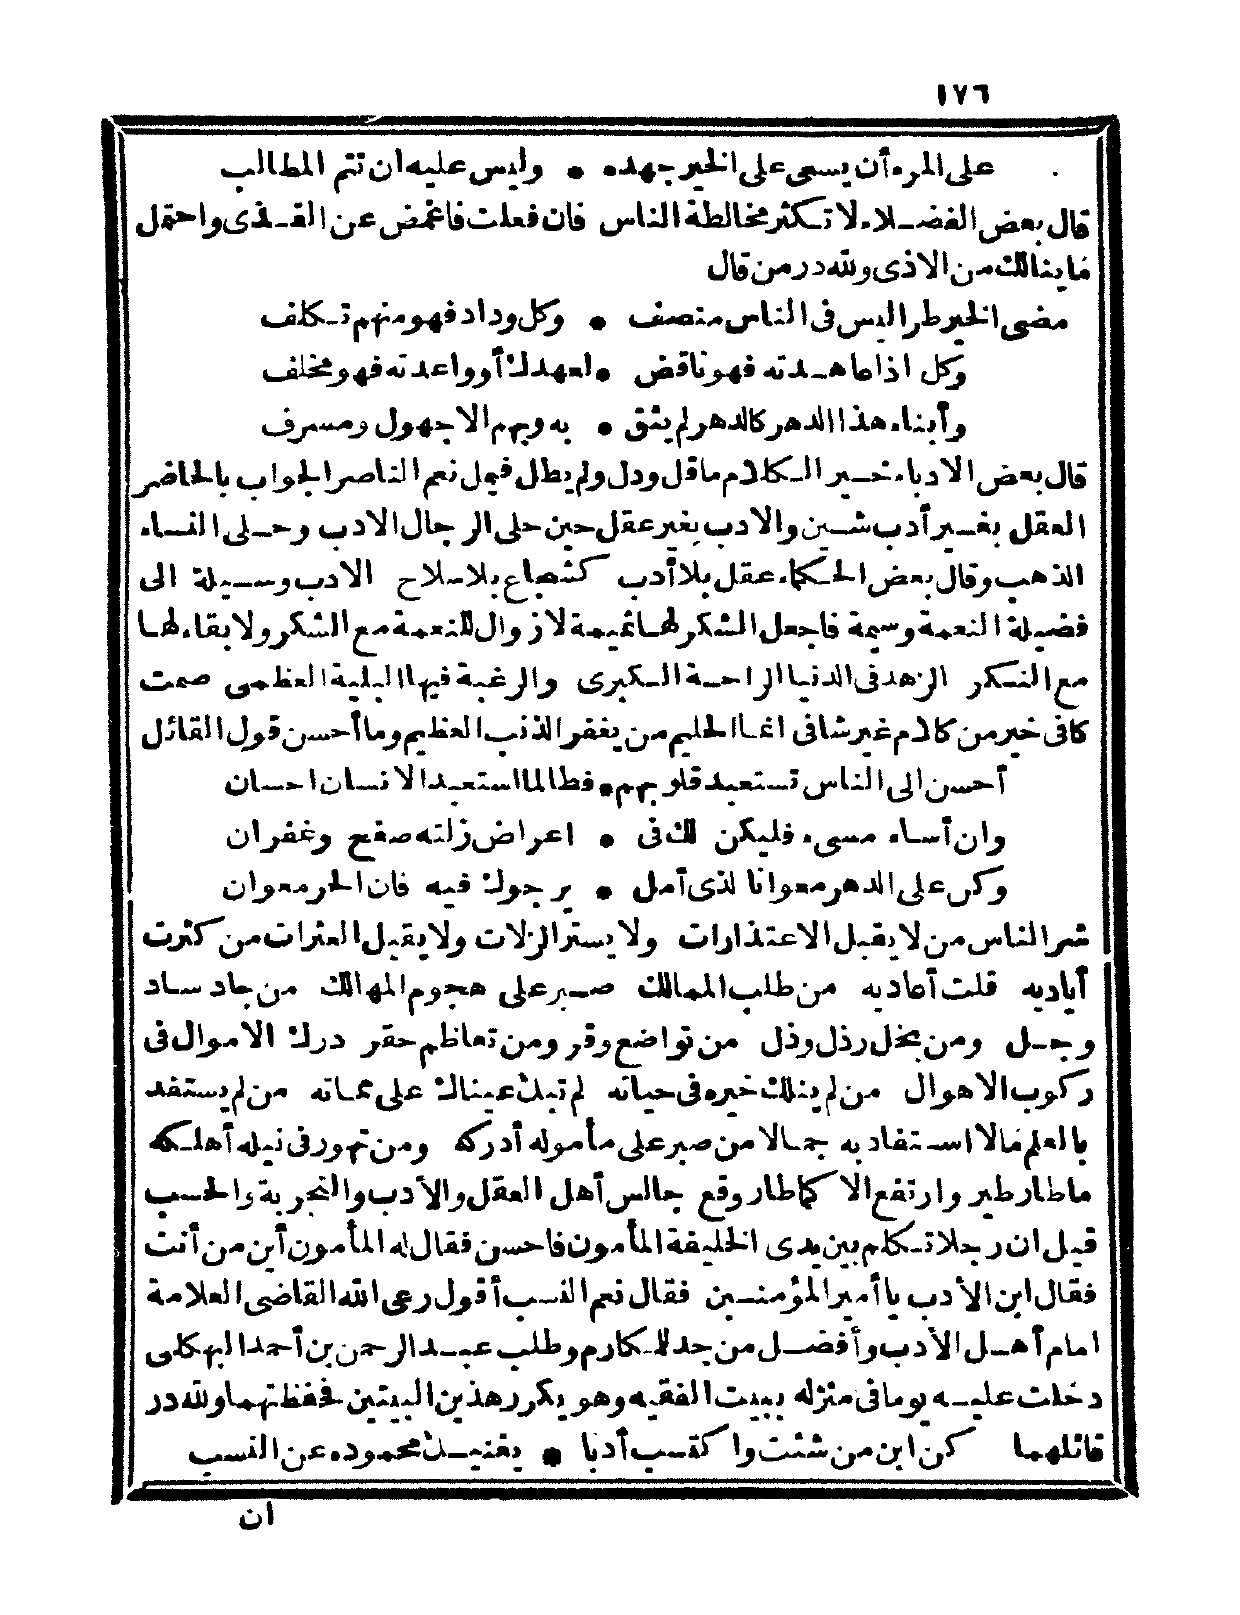 ١٧٦
على المرء أن يسعى على الخير جهده • وليس عليه ان تتم المطالب
قال بعض الفضلاء لا تكثر مخالطة الناس فان فعلت فاغمض عن القذى واحتمل
ما ينالك من الاذى ولله در من قال
مضى الخير طرا ليس فى الناس منصف • وكل وداد فهو منهم تكلف
وكل اذا عاهدته فهو ناقض • لعهدك أو واعدته فهو مخلف
وأبناء هذا الدهر كالدهر لم يثق • به وبهم الا جهول ومسرف
قال بعض الادباء خير الكلام ما قل ودل ولم يطل فيمل نعم الناصر الجواب بالحاضر
العقل بغير أدب شين والادب بغير عقل حين حلى الرجال الادب وحلى النساء
الذهب وقال بعض الحكماء عقل بلا أدب كشجاع بلا سلاح الادب وسيلة الى
فضيلة النعمة وسيمة فاجعل الشكر لها تميمة لا زوال للنعمة مع الشكر ولا بقاء لها
مع النكر الزهد فى الدنيا الراحة الكبرى والرغبة فيها البلية العظمى صمت
كافى خير من كلام غير شافى انما الحليم من يغفر الذنب العظيم وما أحسن قول القائل
أحسن الى الناس تستعبد قلوبهم • فطالما استعبد الانسان احسان
وان أساء مسىء فليكن لك فى • اعراض زلته صفح وغفران
وكن على الدهر معوانا لذى أمل • يرجوك فيه فان الحر معوان
شر الناس من لا يقبل الاعتذارات ولا يستر الزلات ولا يقبل العثرات من كثرت
أياديه قلت أعاديه من طلب الممالك صبر على هجوم المهالك من جاد ساد
وجل ومن بخل رذل وذل من تواضع وقر ومن تعاظم حقر درك الاموال فى
ركوب الاهوال من لم ينلك خيره فى حياته لم تبك عيناك على مماته من لم يستفد
بالعلم مالا استفاد به جمالا من صبر على مأموله أدركه ومن تهور فى نيله أهلكه
ما طار طير وارتفع الا كما طار وقع جالس أهل العقل والأدب والتجربة والحسب
قيل ان رجلا تكلم بين يدى الخليفة المأمون فاحسن فقال له المأمون أبن من أنت
فقال ابن الأدب يا أمير المؤمنين فقال نعم النسب أقول رعى الله القاضى العلامة
امام أهل الأدب وأفضل من جد للمكارم وطلب عبد الرحمن بن أحمد البهكلى
دخلت عليه يوما فى منزله ببيت الفقيه وهو يكرر هذين البيتين فحفظتهما ولله در
قائلهما كن ابن من شئت واكتسب أدبا • يغنيك محموده عن النسب
ان